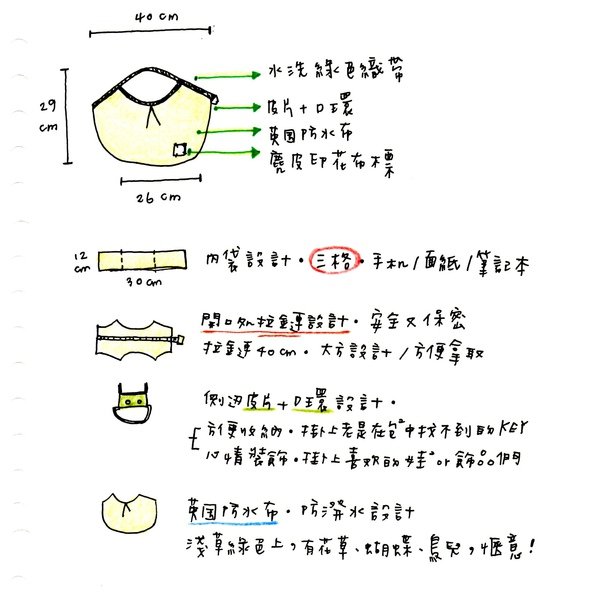 40 cm
水洗綠色織帶
29 cm
皮片+D環
英国防水布
麂皮印花布標
26 cm
12 cm
30 cm
內袋設計。三格。手机/面紙/筆記本
開口処拉鍊設計。安全又保密
拉鍊40cm。大方設計/方便拿取
側边皮片+D環設計。
方便收納。掛上老是在包中找不到的KEY
心情裝飾。掛上喜欢的娃娃or飾品們
英国防水布。防潑水設計
淺草綠色上,有花草、蝴蝶、鳥兒,愜意!